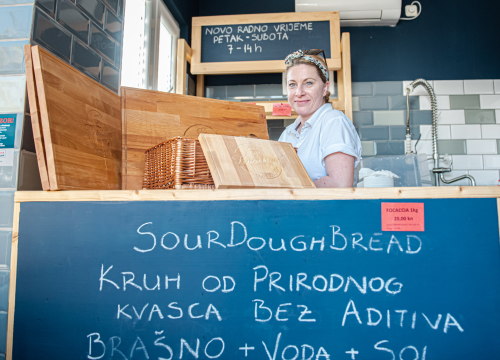 NOVO RADNO VRIJEME
PETAK-SUBOTA
7-14h
FOCACCIA 1kg
SOURDOUGHBREAD
KRUH OD PRIRODNOG
KVASCA BEZ ADITIVA
BRAŠNO + VODA + SOL